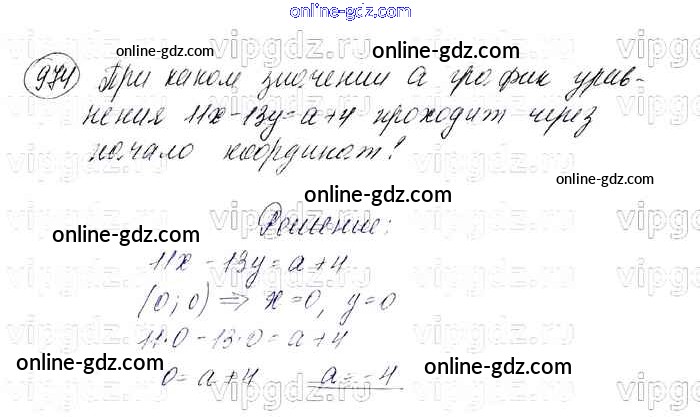 online-gdz.com
974 При каком значении а график урав-
нения 11x-13y=a+4 проходит через
начало координат?
Решение:
11x - 13y = a+4
(0; 0) ⇒ x=0, y=0
11·0 - 13·0 = a+4
0 = a+4 a = -4
online-gdz.com
online-gdz.com
online-gdz.com
online-gdz.com
online-gdz.com
online-gdz.com
online-gdz.com
online-gdz.com
online-gdz.com